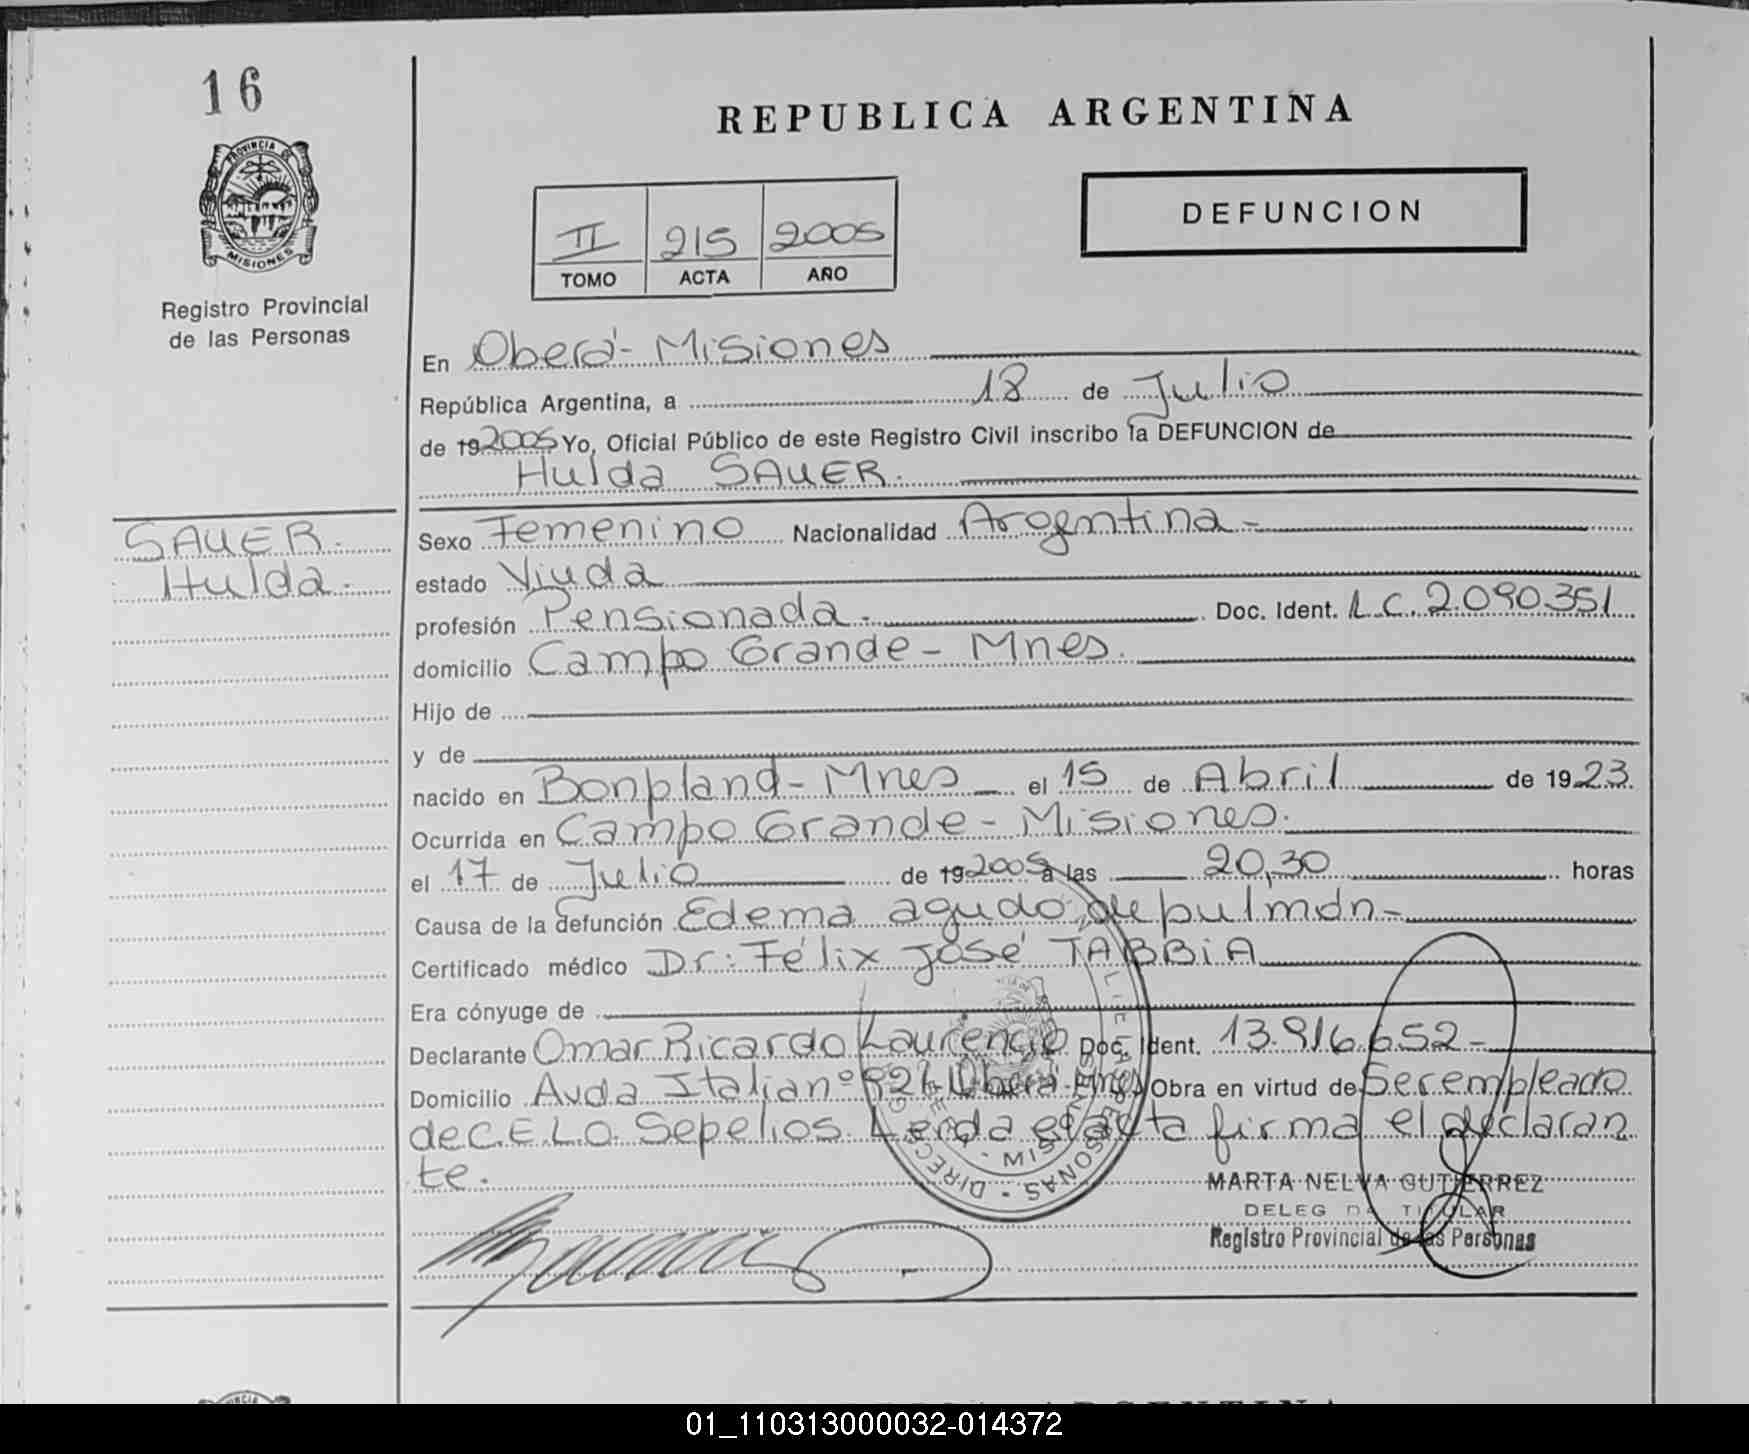 16
PROVINCIA DE
MISIONES
Registro Provincial
de las Personas
REPUBLICA ARGENTINA
II 215 2005
TOMO ACTA AÑO
DEFUNCION
En Oberá - Misiones
República Argentina, a 18 de Julio
de 19 2005 Yo, Oficial Público de este Registro Civil inscribo la DEFUNCION de
Hulda SAUER.
SAUER.
Hulda.
Sexo Femenino Nacionalidad Argentina -
estado Viuda
profesión Pensionada. Doc. Ident. L.C. 2.090.351
domicilio Campo Grande - Mnes.
Hijo de
y de
nacido en Bonpland - Mnes el 15 de Abril de 19 23.
Ocurrida en Campo Grande - Misiones.
el 17 de Julio de 19 2005 a las 20,30 horas
Causa de la defunción Edema agudo de pulmón -
Certificado médico Dr: Félix José TABBIA
Era cónyuge de
Declarante Omar Ricardo Laurencio Doc. Ident. 13.916.652 -
Domicilio Avda Italia nº Oberá - Mnes Obra en virtud de Ser empleado
de C.E.L.O. Sepelios. Leída el acta firma el declaran
te.
MARTA NELVA GUTIERREZ
DELEGADA TITULAR
Registro Provincial de las Personas
ARGENTINA
01_110313000032-014372